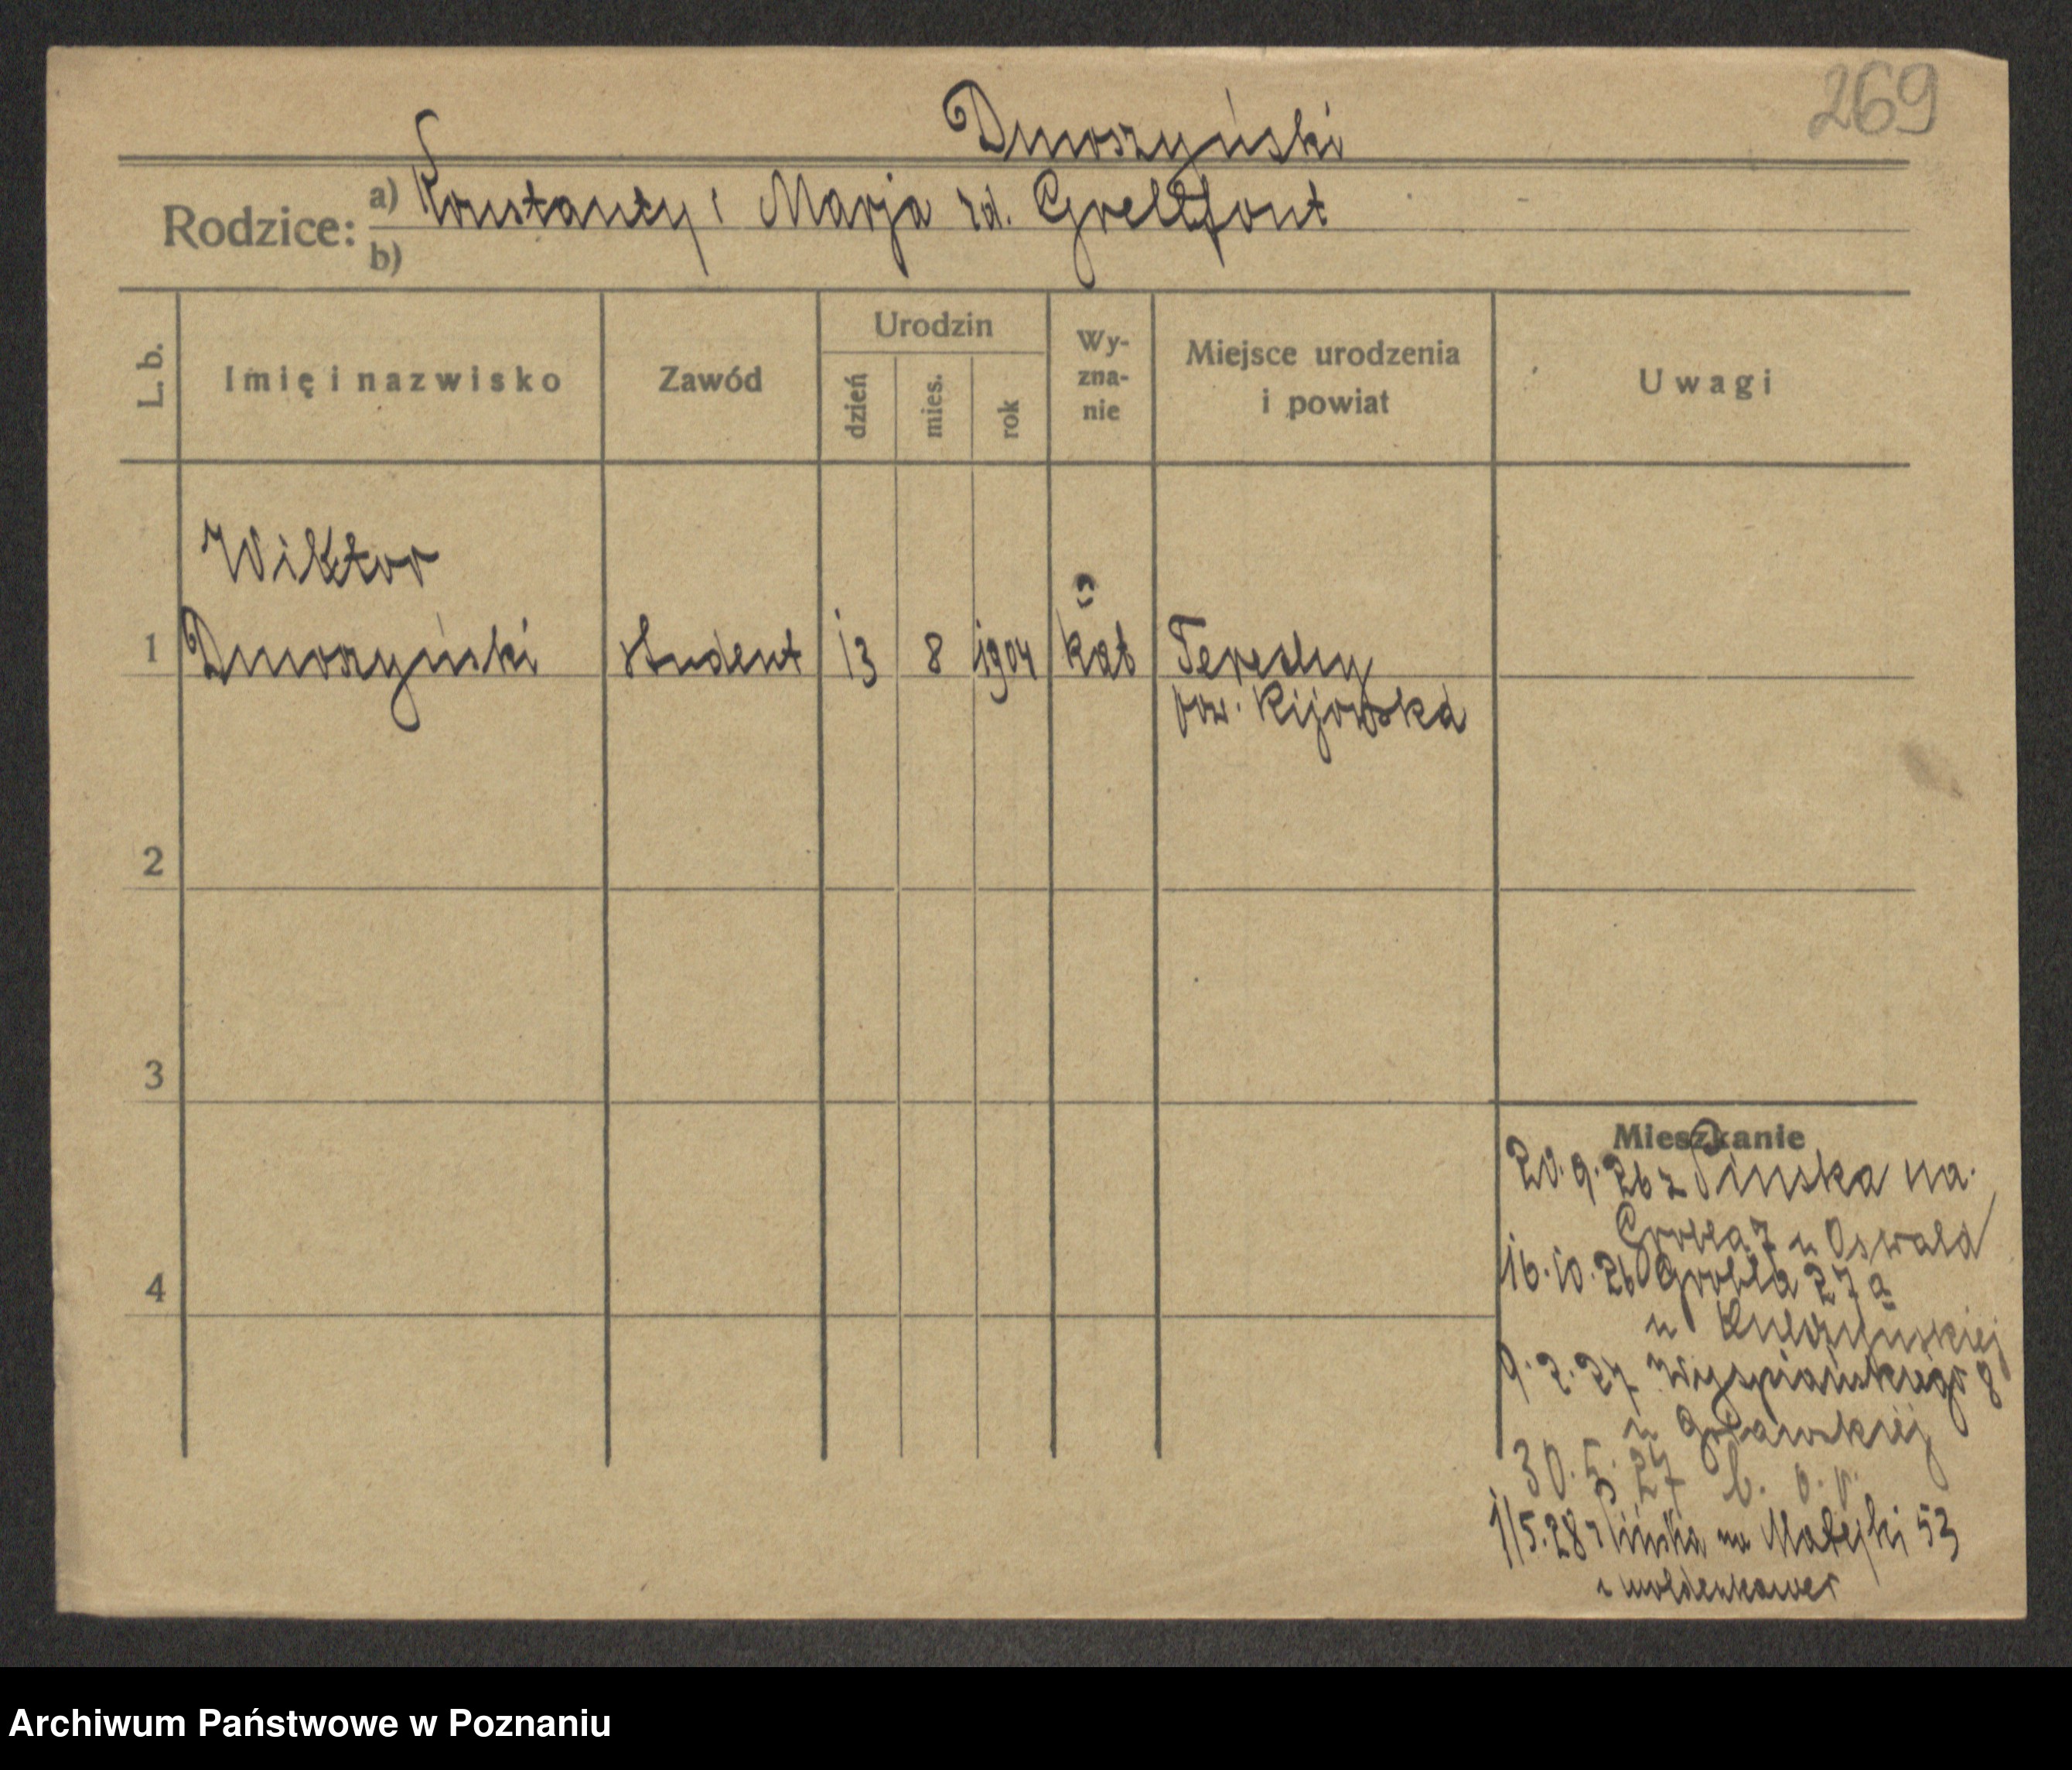 269
Dmoszyński
Rodzice: a) Konstanty i Marja zd. Grellfont
b)
L. b. Imię i nazwisko Zawód Urodzin dzień mies. rok Wy-zna-nie Miejsce urodzenia i powiat Uwagi
Wiktor
1 Dmoszyński student 13 8 1904 kat Tereszky
pow. Kijowska
2
3
Mieszkanie
20.9.26 z Pińska na
Grobla 7 u Oswald
4
16.10.26 Grobla 27a
u
9.2.27 Wyspiańskiego 8
u
30.5.27 b. o. p.
1/5.28 z Pińska na Matejki 53
u Moldenhawer
Archiwum Państwowe w Poznaniu